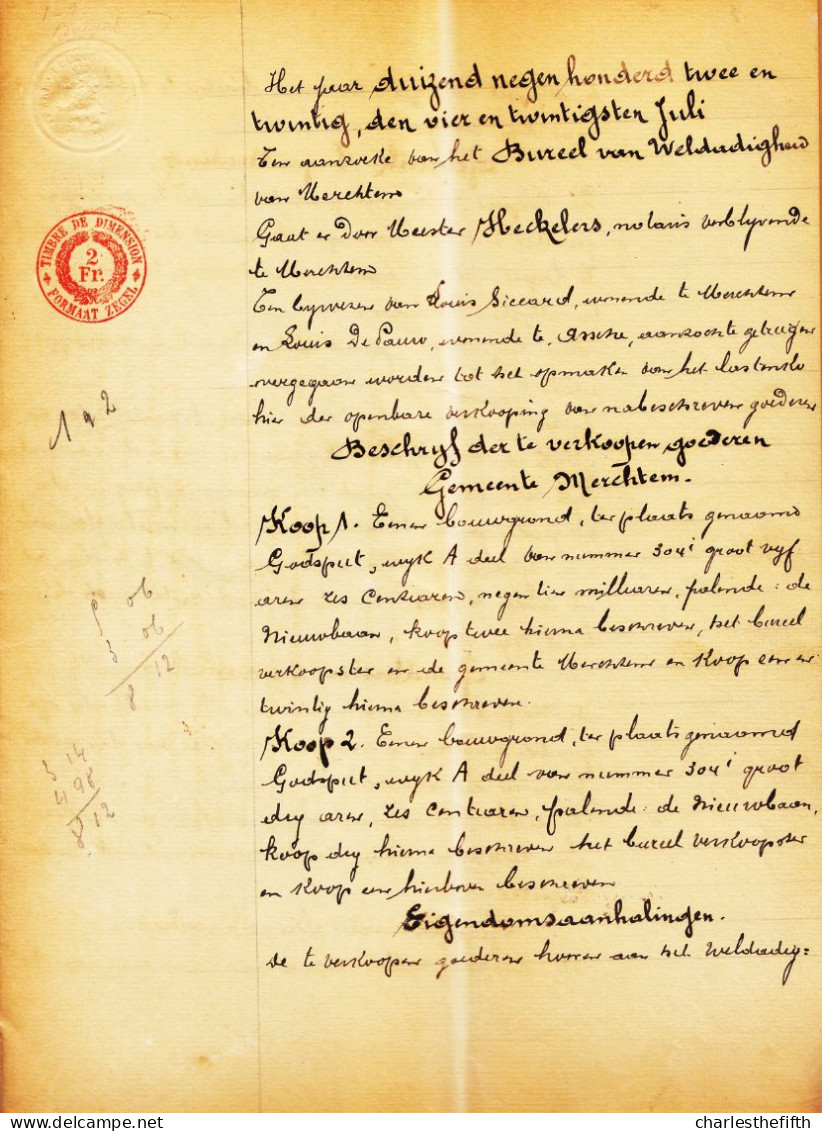 Het jaar duizend negen honderd twee en
twintig, den vier en twintigsten Juli
Ten aanzoeke van het Bureel van Weldadigheid
van Merchtem
Gaat er door Meester Heckelers, notaris verblyvende
te Merchtem
TIMBRE DE DIMENSION
2
Fr.
FORMAAT ZEGEL
Ten bywezen van Louis Siccard, wonende te Merchtem
en Louis De Pauw, wonende te Assche, aanzochte getuigen
overgegaan worden tot het opmaken van het lastenko
hier der openbare verkooping van nabeschreven goederen
1 a 2
Beschryf der te verkoopen goederen
Gemeente Merchtem.
Koop 1. Eenen bouwgrond, ter plaats genaamd
Godsput, wyk A deel van nummer 304i groot vyf
aren zes centiaren, negen tien milliaren, palende: de
Nieuwbaan, koop twee hierna beschreven, het bureel
verkoopster en de gemeente Merchtem en koop een en
twintig hierna beschreven.
5 06
3 06
8 12
Koop 2. Eenen bouwgrond, ter plaats genaamd
Godsput, wyk A deel van nummer 304i groot
dry aren, zes centiaren, palende: de Nieuwbaan,
koop dry hierna beschreven het bureel verkoopster
en koop een hierboven beschreven
3 14
4 98
8 12
Eigendomsaanhalingen.
De te verkoopen goederen hooren aan het Weldadig=
charlesthefifth